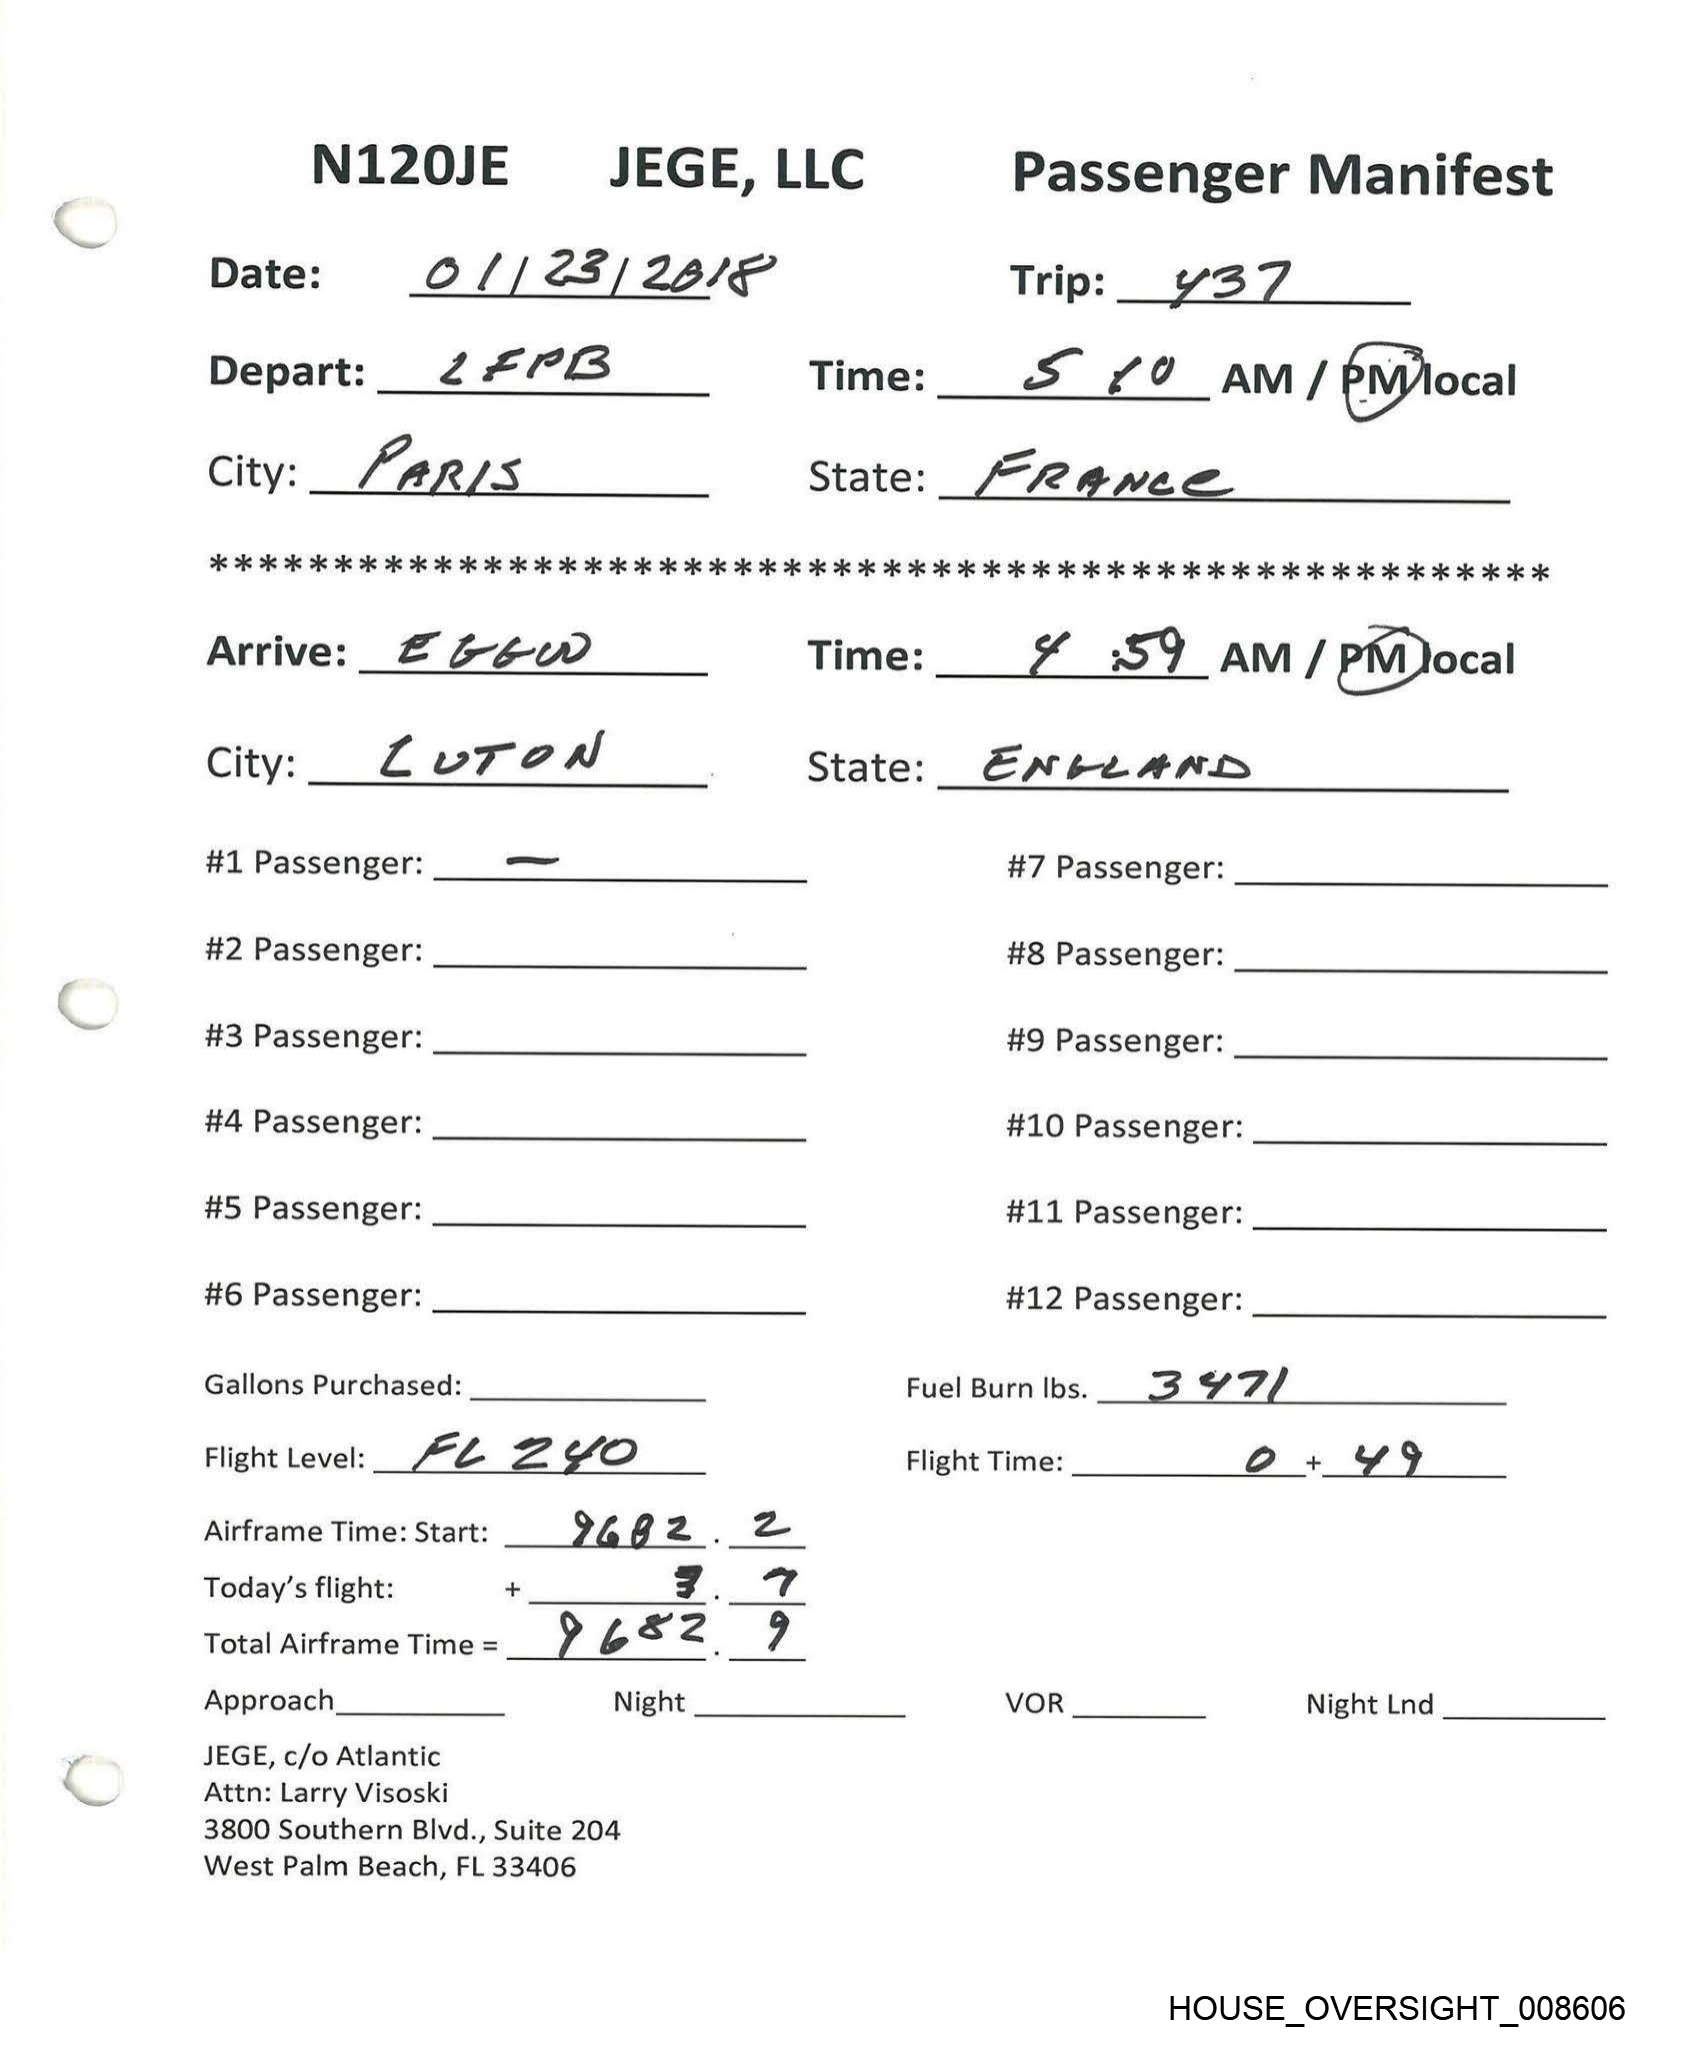 N120JE JEGE, LLC Passenger Manifest
Date: 01/23/2018 Trip: 437
Depart: LFPB Time: 5 :10 AM / PM local
City: PARIS State: FRANCE
******************************************************
Arrive: EGGW Time: 4 :59 AM / PM local
City: LUTON State: ENGLAND
#1 Passenger: — #7 Passenger:
#2 Passenger: #8 Passenger:
#3 Passenger: #9 Passenger:
#4 Passenger: #10 Passenger:
#5 Passenger: #11 Passenger:
#6 Passenger: #12 Passenger:
Gallons Purchased: Fuel Burn lbs. 3471
Flight Level: FL 240 Flight Time: 0 + 49
Airframe Time: Start: 9682 . 2
Today's flight: + . 7
Total Airframe Time = 9682 . 9
Approach Night VOR Night Lnd
JEGE, c/o Atlantic
Attn: Larry Visoski
3800 Southern Blvd., Suite 204
West Palm Beach, FL 33406
HOUSE_OVERSIGHT_008606